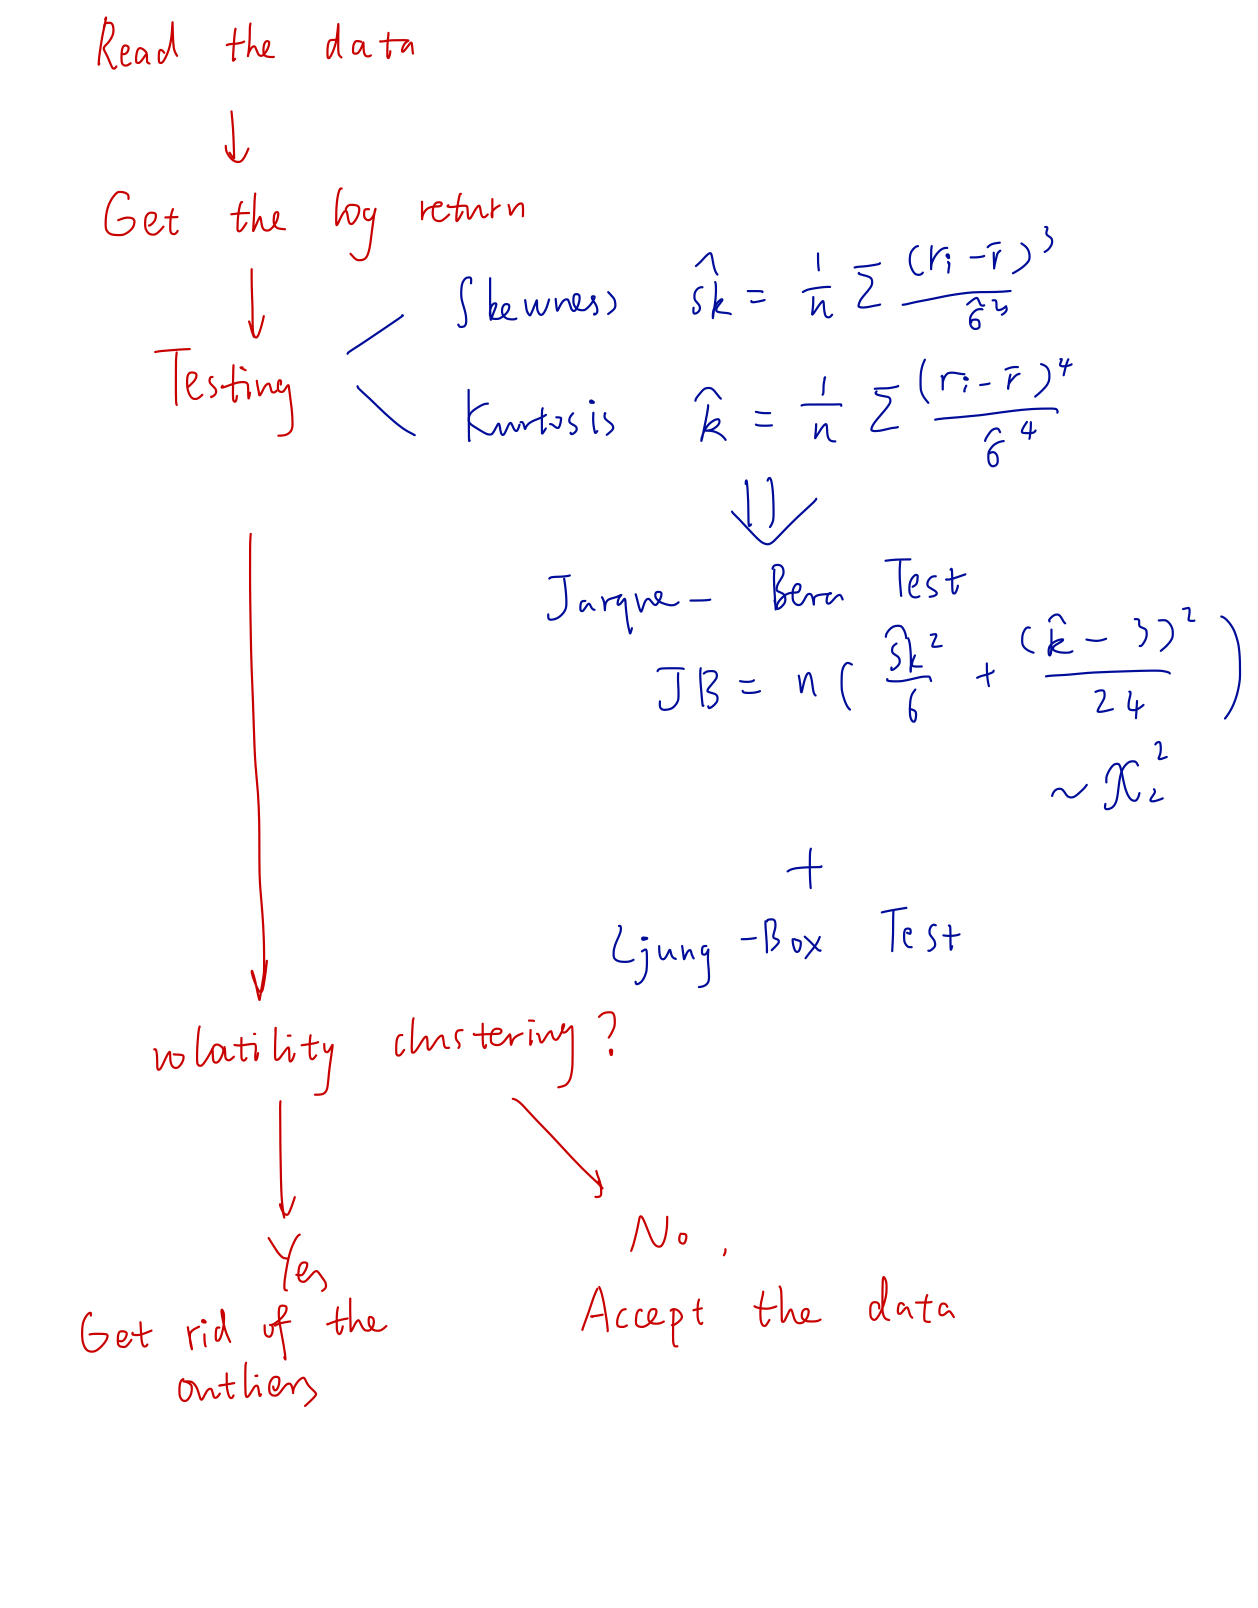 Read the data
↓
Get the log return
↓
Testing
Skewness ŝk = 1/n Σ (rᵢ - r̄)³ / σ̂³
Kurtosis k̂ = 1/n Σ (rᵢ - r̄)⁴ / σ̂⁴
⇓
Jarque- Bera Test
JB = n ( ŝk² / 6 + (k̂ - 3)² / 24 )
~ χ₂²
+
Ljung -Box Test
↓
volatility clustering?
↓ ↘
Yes
No,
Get rid of the
outliers
Accept the data